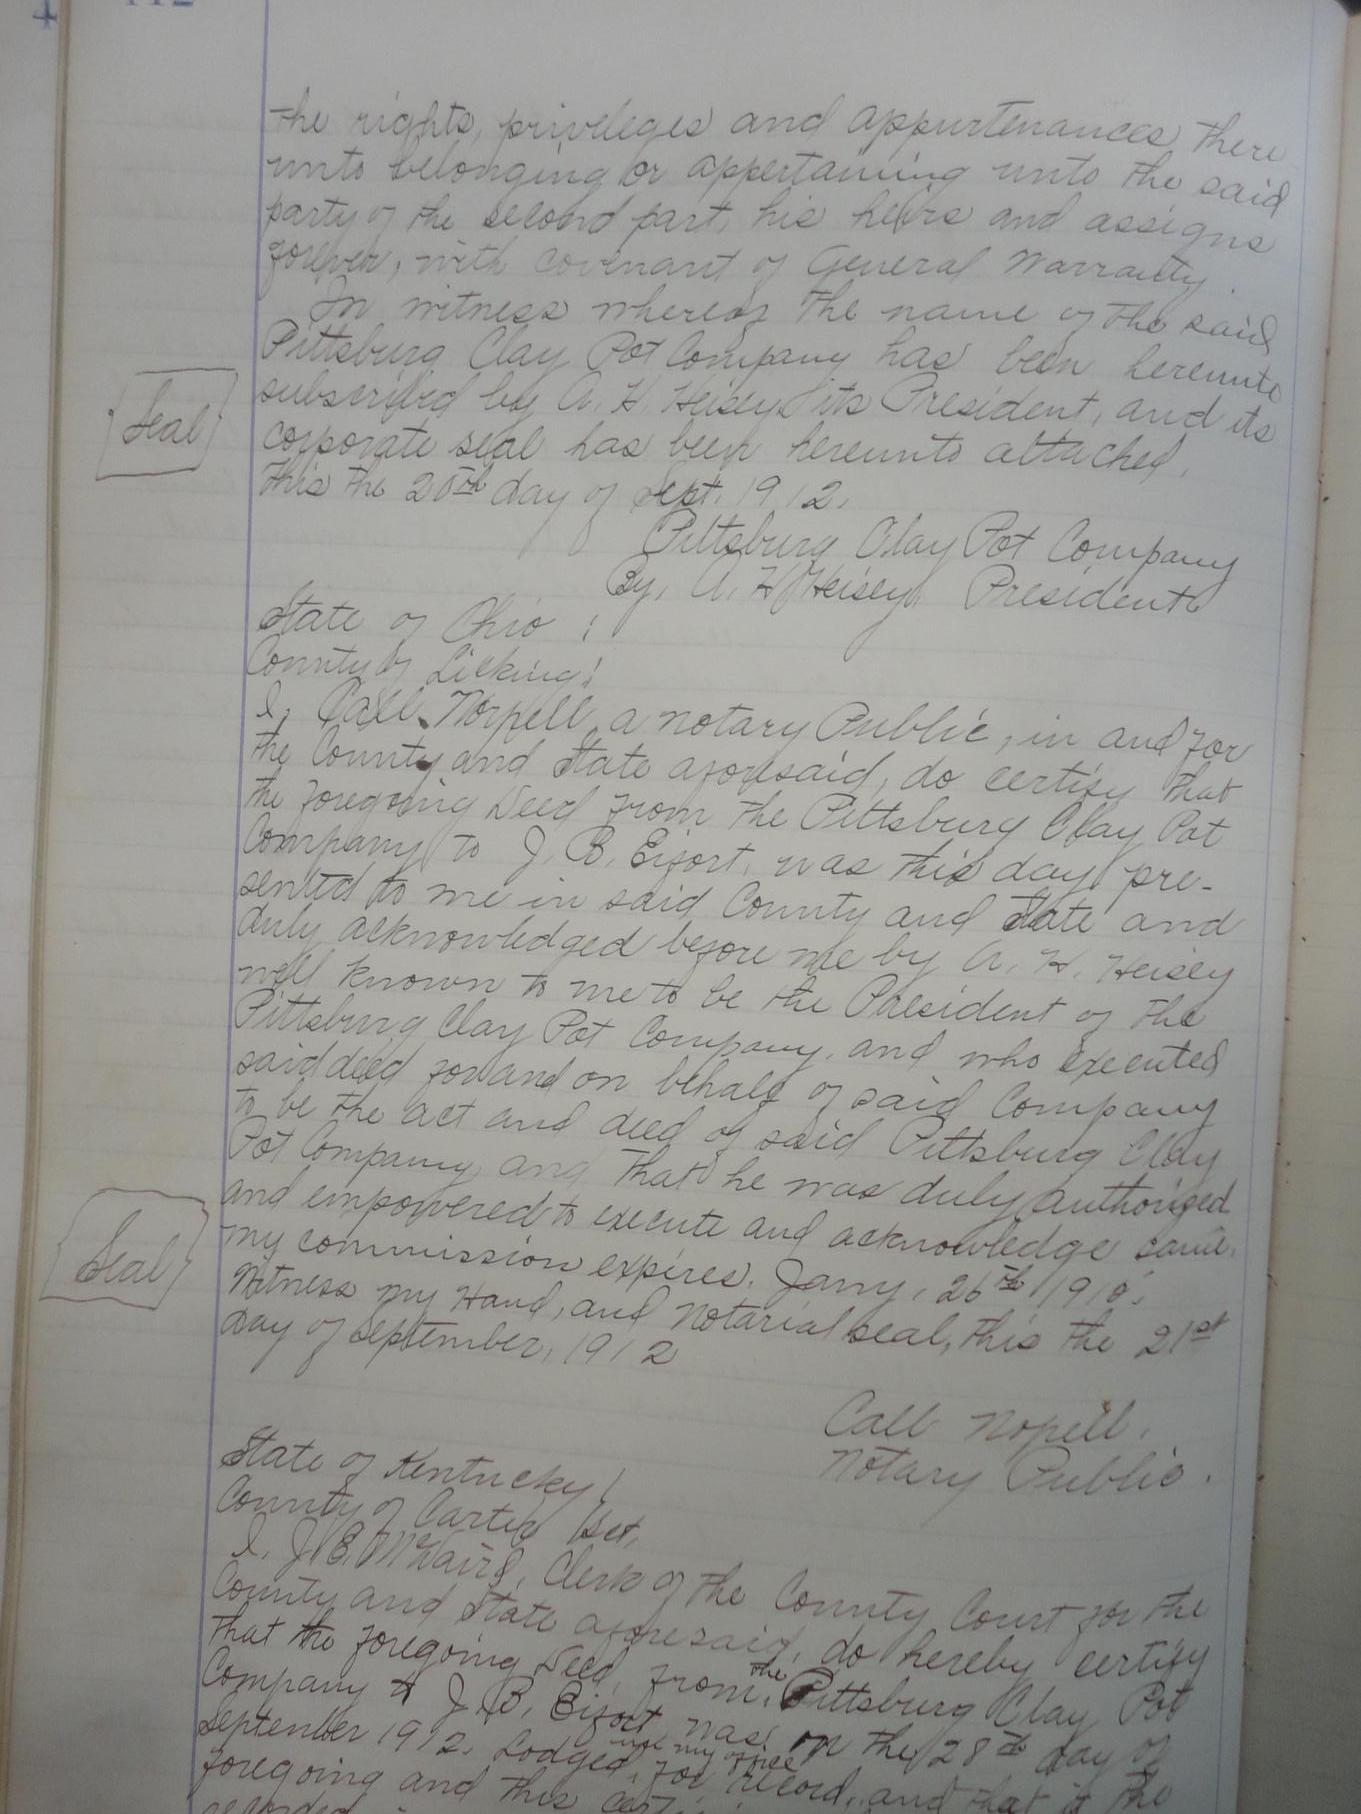 112
the rights, privileges and appurtenances there
unto belonging or appertaining unto the said
party of the second part, his heirs and assigns
forever, with covenant of General Warranty.
In witness whereof the name of the said
Pittsburg Clay Pot Company has been hereunto
subscribed by A. H. Heisey, its President, and its
Seal
corporate seal has been hereunto attached,
this the 20th day of Sept. 1912.
Pittsburg Clay Pot Company
By, A. H. Heisey, President
State of Ohio :
County of Licking:
I, Call Norpell, a notary Public, in and for
the County and State aforesaid, do certify that
the foregoing Deed from the Pittsburg Clay Pot
Company to J. B. Eifort, was this day pre-
sented to me in said County and State and
duly acknowledged before me by A. H. Heisey
well known to me to be the President of the
Pittsburg Clay Pot Company, and who executed
said deed for and on behalf of said Company
to be the act and deed of said Pittsburg Clay
Pot Company, and that he was duly authorized
and empowered to execute and acknowledge same.
Seal
My commission expires, Jany, 26th
Witness my Hand, and Notarial seal, this the 21st
Day of September, 1912
Call Nopell.
Notary Public.
State of Kentucky
County of Carter Sct.
I, J. E. Clerk of the County Court for the
County and State aforesaid, do hereby certify
that the foregoing Deed, from the Pittsburg Clay Pot
Company to J. B. Eifort, was on the 28th day of
September 1912, Lodged in my office for record, and that it the
foregoing and this
recorded